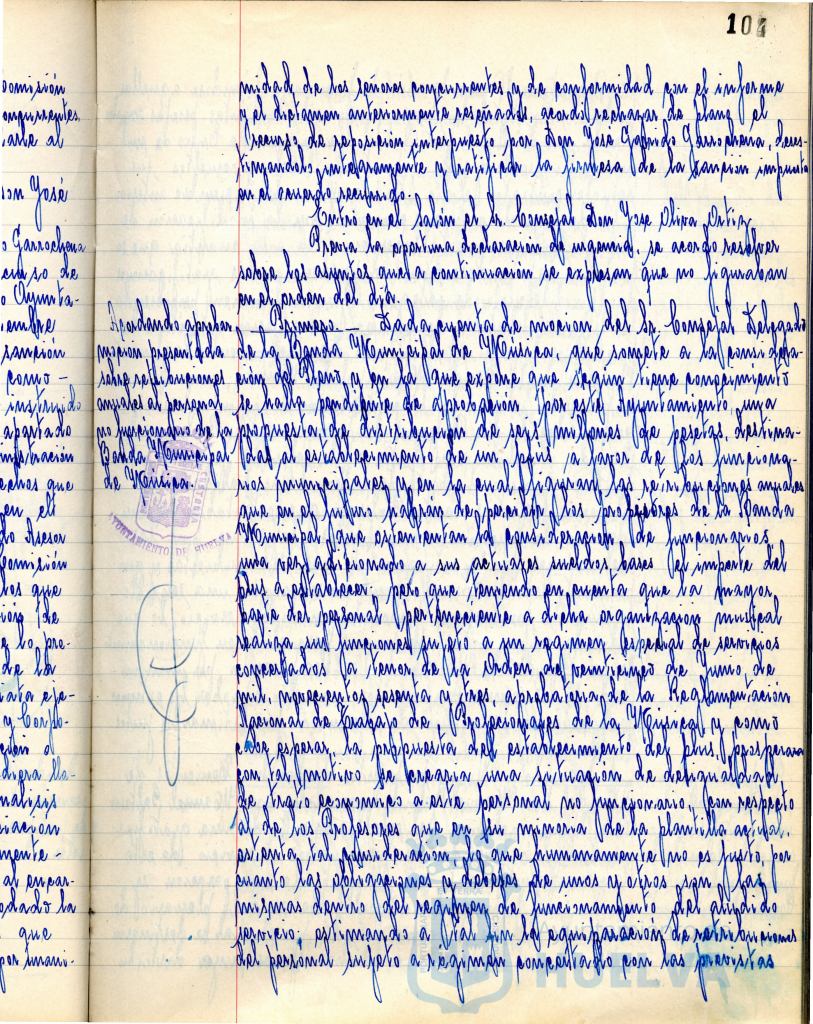 104
omisión
oncurrentes
on José
o Garrochena
curso de
o Ayunta-
sanción
como -
instruido
apartado
echos que
en el
do Asesor
omisión
los que
ción de
lo pro-
de la
nálisis
mente -
al encar-
que
midad de los señores concurrentes y de conformidad con el informe
y el dictamen anteriormente reseñados, acordó rechazar de plano el
recurso de reposición interpuesto por Don José Garrochena, deses-
timandolo integramente y ratificar la firmeza de la sanción impuesta
en el acuerdo recurrido.
Entró en el Salón el Sr. Concejal Don José Oliva Ortiz
Previa la oportuna declaración de urgencia, se acordo resolver
sobre los asuntos que a continuación se expresan que no figuraban
en el orden del día.
Acordando aprobar
moción presentada
sobre retribuciones
anuales al personal
no funcionario de la
Banda Municipal
de Música.
AYUNTAMIENTO DE HUELVA
Primero.- Dada cuenta de mocion del Sr. Concejal Delegado
de la Banda Municipal de Música, que somete a la considera-
ción del Pleno y en la que expone que según tiene conocimiento
se halla pendiente de aprobación por este Ayuntamiento, una
propuesta de distribución de seis millones de pesetas, destina-
da al establecimiento de un plus a favor de los funciona-
rios municipales y en la cual figuran las retribuciones anuales
que en el futuro habrán de percibir los profesores de la Banda
Municipal que ostentan la consideración de funcionarios,
una vez adicionado a sus actuales sueldos bases el importe del
plus a establecer; pero que teniendo en cuenta que la mayor
parte del personal perteneciente a dicha organización musical
realiza sus funciones sujeto a un regimen especial de servicios
concertados a tenor de la Orden de veinticinco de Junio de
mil novecientos sesenta y tres, aprobatoria de la Reglamentación
Nacional de Trabajo de Profesionales de la Música y como
cabe esperar, la propuesta del establecimiento del plus prosperara
con tal motivo se crearia una situación de desigualdad
de trato economico a este personal no funcionario, con respecto
al de los Profesores que en su minoria de la plantilla actual,
ostenta tal consideración, lo que humanamente no es justo, por
cuanto las obligaciones y deberes de unos y otros son las
mismas dentro del regimen de funcionamiento del aludido
servicio; estimando a tal fin la equiparación de retribuciones
del personal sujeto a regimen concertado con las previstas
HUELVA